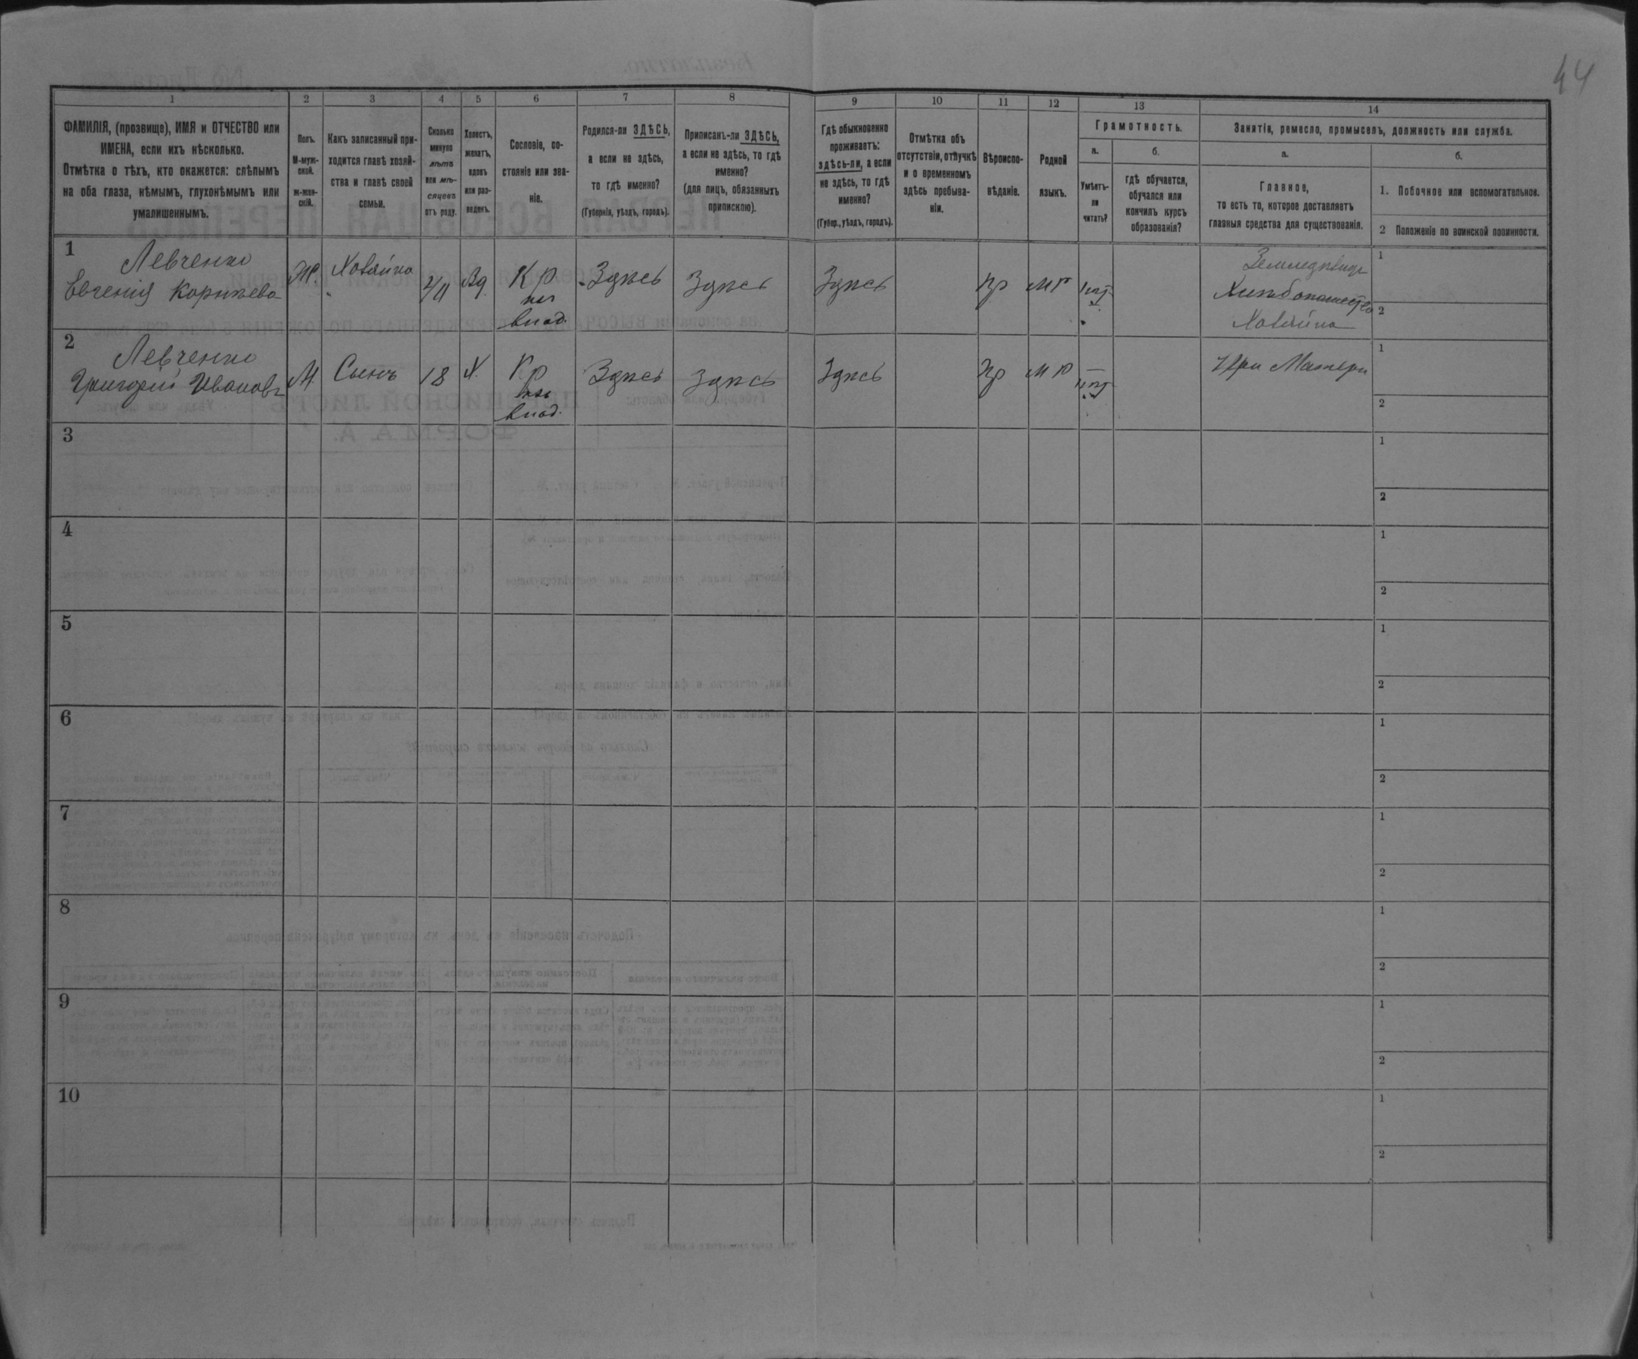 44
1 2 3 4 5 6 7 8 9 10 11 12 13 14
ФАМИЛІЯ, (прозвище), ИМЯ и ОТЧЕСТВО или
ИМЕНА, если ихъ нѣсколько.
Отмѣтка о тѣхъ, кто окажется: слѣпымъ
на оба глаза, нѣмымъ, глухонѣмымъ или
умалишеннымъ.
Полъ.
М-муж-
ской.
ж-жен-
скій.
Какъ записанный при-
ходится главѣ хозяй-
ства и главѣ своей
семьи.
Сколько
минуло
лѣтъ
или мѣ-
сяцевъ
отъ роду.
Холостъ,
женатъ,
вдовъ
или раз-
веденъ.
Сословіе, со-
стояніе или зва-
ніе.
Родился-ли ЗДѢСЬ,
а если не здѣсь,
то гдѣ именно?
(Губернія, уѣздъ, городъ).
Приписанъ-ли ЗДѢСЬ,
а если не здѣсь, то гдѣ
именно?
(для лицъ, обязанныхъ
припискою).
Гдѣ обыкновенно
проживаетъ:
здѣсь-ли, а если
не здѣсь, то гдѣ
именно?
(Губер., уѣздъ, городъ).
Отмѣтка объ
отсутствіи, отлучкѣ
и о временномъ
здѣсь пребыва-
ніи.
Вѣроиспо-
вѣданіе.
Родной
языкъ.
Грамотность.
а.
Умѣетъ-
ли
читать?
б.
гдѣ обучается,
обучался или
кончилъ курсъ
образованія?
Занятія, ремесло, промыселъ, должность или служба.
а.
Главное,
то есть то, которое доставляетъ
главныя средства для существованія.
б.
1. Побочное или вспомогательное.
2 Положеніе по воинской повинности.
1
Левченко
Евгенія Корнѣева
Ж
Хозяйка
Вд
Кр
влад.
Здѣсь
Здѣсь
Здѣсь
пр
мр
нѣт
Хлѣбопашество
Хозяйка
1
2
2
Левченко
Григорій Ивановъ
М
Сынъ
18
Х
Кр
влад.
Здѣсь
Здѣсь
Здѣсь
пр
мр
нѣт
При Матери
1
2
3
1
2
4
1
2
5
1
2
6
1
2
7
1
2
8
1
2
9
1
2
10
1
2